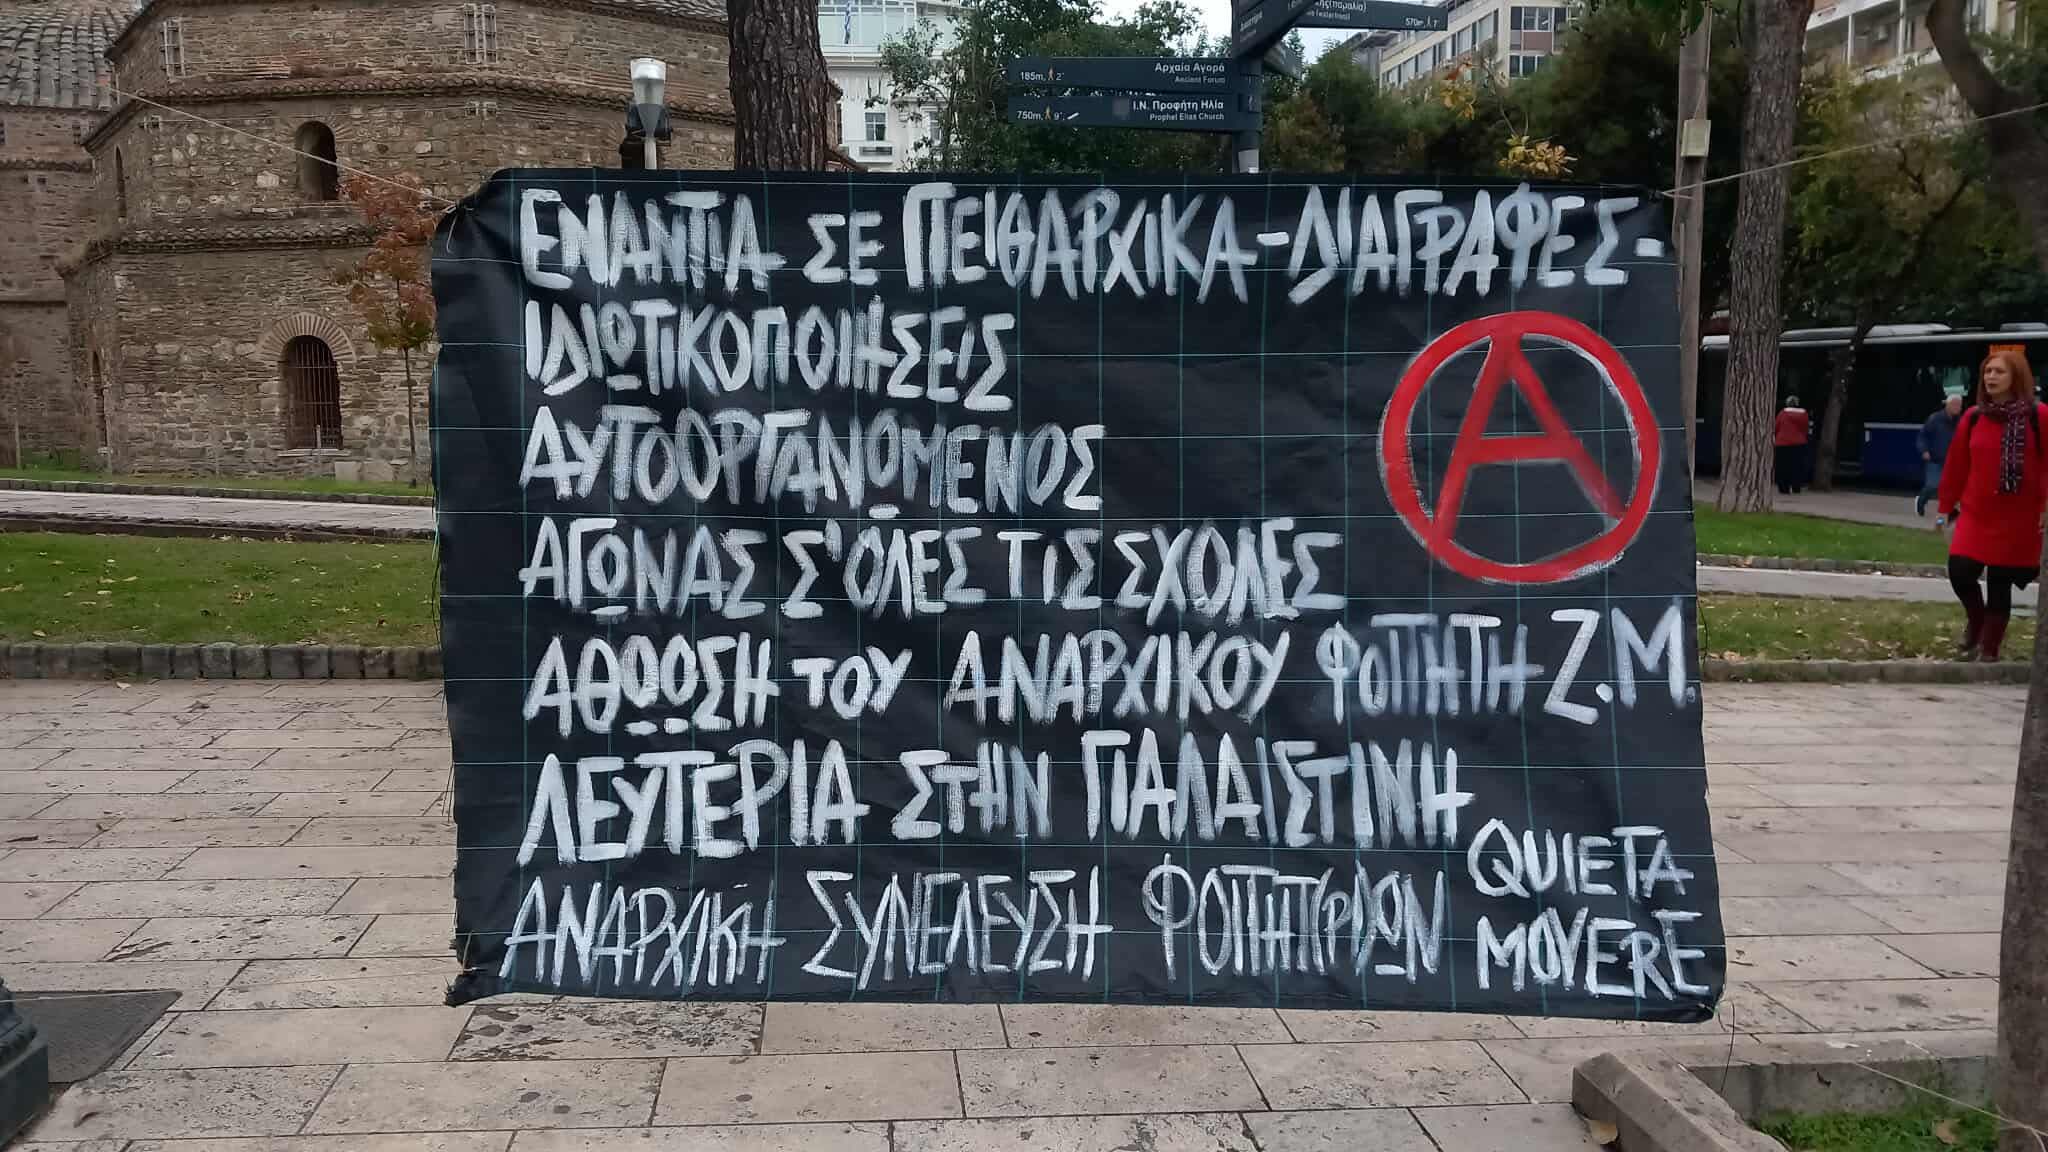 570m, 7'
185m, 2'
Αρχαία Αγορά
Ancient Forum
750m, 9'
Ι.Ν. Προφήτη Ηλία
Prophet Elias Church
ΕΝΑΝΤΙΑ ΣΕ ΠΕΙΘΑΡΧΙΚΑ-ΔΙΑΓΡΑΦΕΣ-
ΙΔΙΩΤΙΚΟΠΟΙΗΣΕΙΣ
ΑΥΤΟΟΡΓΑΝΩΜΕΝΟΣ
ΑΓΩΝΑΣ Σ'ΟΛΕΣ ΤΙΣ ΣΧΟΛΕΣ
ΑΘΩΩΣΗ ΤΟΥ ΑΝΑΡΧΙΚΟΥ ΦΟΙΤΗΤΗ Ζ.Μ.
ΛΕΥΤΕΡΙΑ ΣΤΗΝ ΠΑΛΑΙΣΤΙΝΗ
ΑΝΑΡΧΙΚΗ ΣΥΝΕΛΕΥΣΗ ΦΟΙΤΗΤΡΙΩΝ
QUIETA
MOVERE